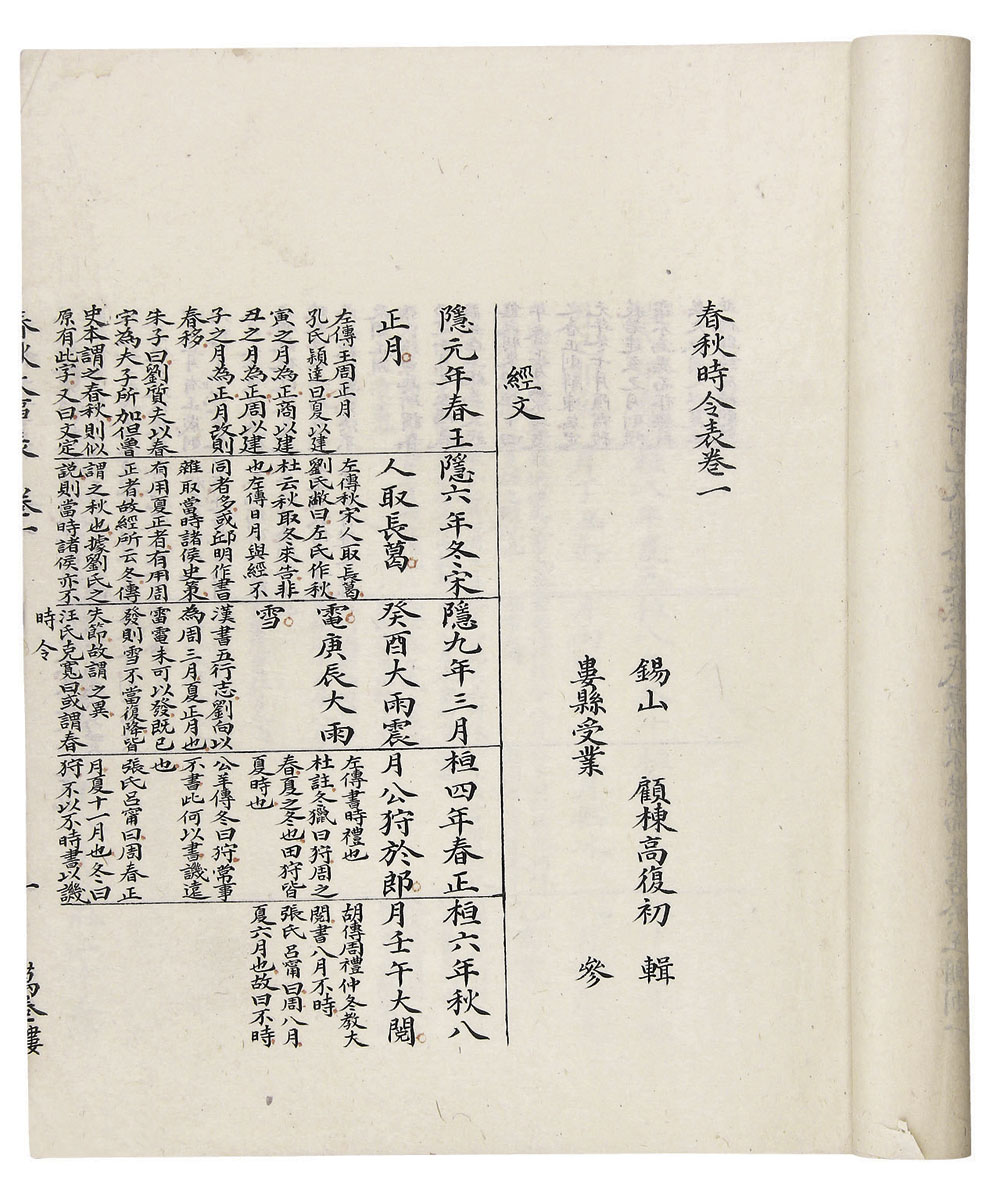 春秋時令表卷一
錫山 顧棟高復初 輯
婁縣受業 參
經文
隱元年春王
正月
左傳王周正月
孔氏穎達曰夏以建
寅之月為正商以建
丑之月為正周以建
子之月為正月改則
春移
朱子曰劉質夫以春
字為夫子所加但魯
史本謂之春秋則似
原有此字又曰文定
隱六年冬宋
人取長葛
左傳秋宋人取長葛
劉氏敞曰左氏作秋
杜云秋取冬來告非
也左傳日月與經不
同者多或邱明作書
雜取當時諸侯史策
有用夏正者有用周
正者故經所云冬傳
謂之秋也據劉氏之
説則當時諸侯亦不
隱九年三月
癸酉大雨震
電庚辰大雨
雪
漢書五行志劉向以
為周三月夏正月也
雷電未可以發既已
發則雪不當復降皆
失節故謂之異
汪氏克寬曰或謂春
桓四年春正
月公狩於郎
左傳書時禮也
杜註冬獵曰狩周之
春夏之冬也田狩皆
夏時也
公羊傳冬曰狩常事
不書此何以書譏遠
也
張氏呂甯曰周春正
月夏十一月也冬曰
狩不以不時書以譏
桓六年秋八
月壬午大閱
胡傳周禮仲冬教大
閱書八月不時
張氏呂甯曰周八月
夏六月也故曰不時
時令
一